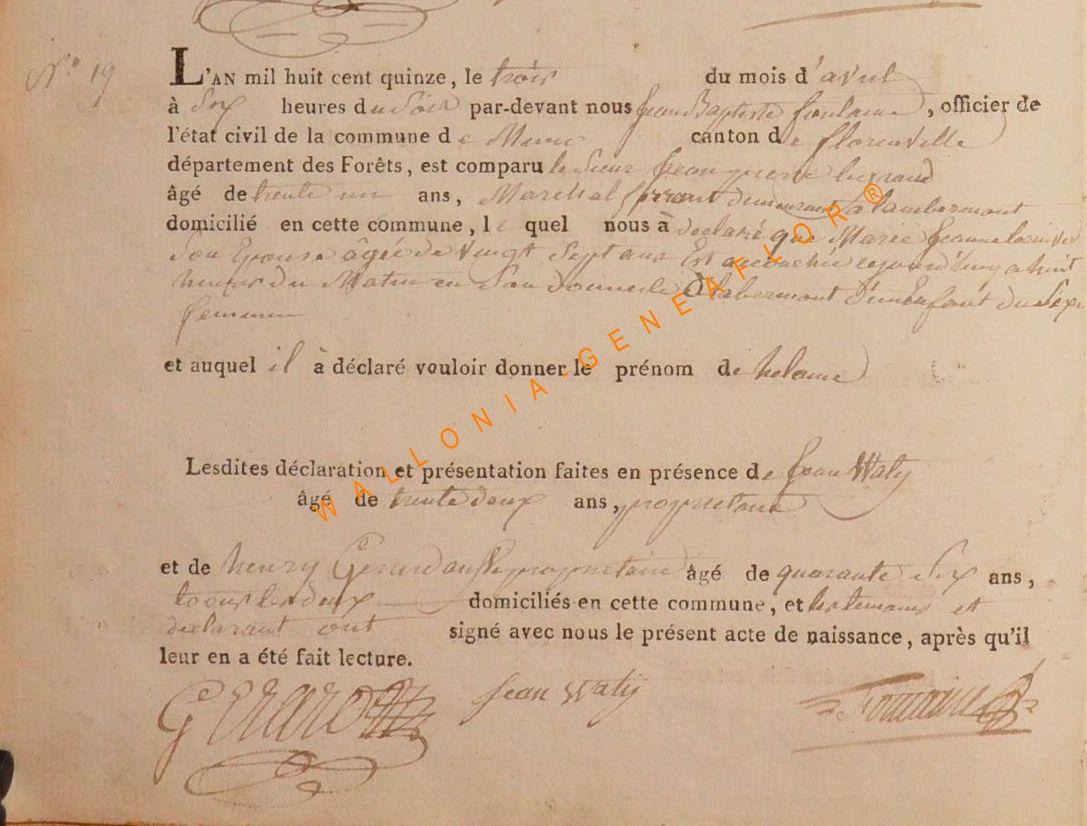 Nº 19
L'AN mil huit cent quinze, le trois du mois d'avril
à Six heures du Soir par-devant nous Jean Baptiste fontaine, officier de
l'état civil de la commune de Muno canton de florenville
département des Forêts, est comparu le Sieur Jean pierre
âgé de trente un ans, Marechal ferrant demeurant a lambermont
domicilié en cette commune, lequel nous à declaré que Marie Jeanne
Son Epouse âgée de Vingt Sept ans Est accouchée cejourd'huy a huit
heures du Matin en Son domicile a labermont d'un Enfant du Sexe
feminin
et auquel il à déclaré vouloir donner le prénom de
Lesdites déclaration et présentation faites en présence de Jean Waty
âgé de trente deux ans, proprietaire
et de henry Gerard proprietaire âgé de quarante Six ans,
tous les deux domiciliés en cette commune, et les temoins et
declarant ont signé avec nous le présent acte de naissance, après qu'il
leur en a été fait lecture.
GERARD Jean Waty Fontaine
WALLONIA-GENEAFLOR®